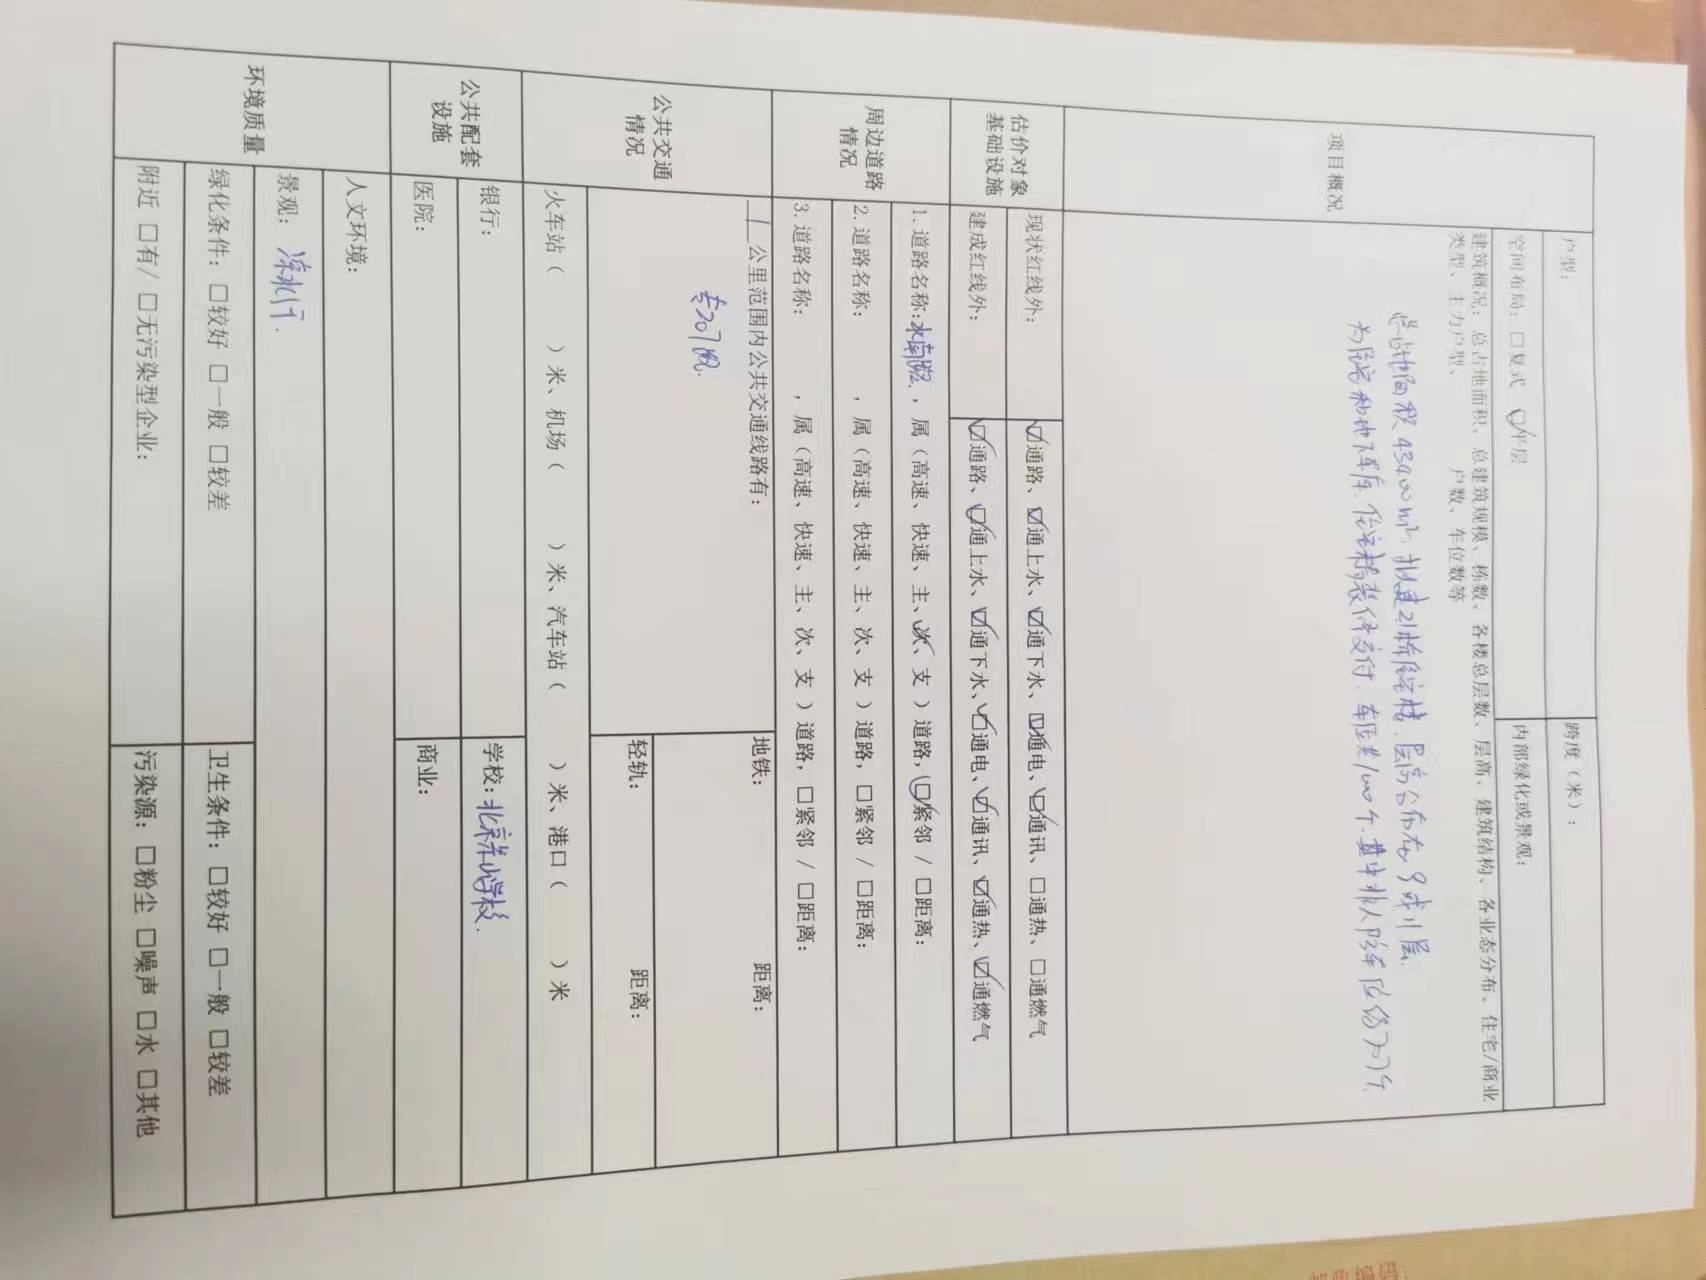 户型：
跨度（米）：
空间布局：□复式 ☑平层
内部绿化或景观：
项目概况
建筑概况：总占地面积、总建筑规模、栋数、各楼总层数、层高、建筑结构、各业态分布、住宅/商业
类型、主力户型、 户数、车位数等
总占地面积43400m²，拟建21栋住宅楼，层高分布在9或11层
为住宅和地下车库，住宅精装修交付，车位共1000个，其中
估价对象
基础设施
现状红线外：
☑通路、☑通上水、☑通下水、☑通电、☑通讯、□通热、□通燃气
建成红线外：
☑通路、☑通上水、☑通下水、☑通电、☑通讯、☑通热、☑通燃气
周边道路
情况
1. 道路名称：水南 ，属（高速、快速、主、次、支）道路，☑紧邻 / □距离：
2. 道路名称： ，属（高速、快速、主、次、支）道路，□紧邻 / □距离：
3. 道路名称： ，属（高速、快速、主、次、支）道路，□紧邻 / □距离：
公共交通
情况
1 公里范围内公共交通线路有：
专207
地铁：
距离：
轻轨：
距离：
火车站（ ）米、机场（ ）米、汽车站（ ）米、港口（ ）米
公共配套
设施
银行：
学校：北京 学校
医院：
商业：
环境质量
人文环境：
景观：凉水河
绿化条件：□较好 □一般 □较差
卫生条件：□较好 □一般 □较差
附近 □有/ □无污染型企业：
污染源：□粉尘 □噪声 □水 □其他
邮政编码：